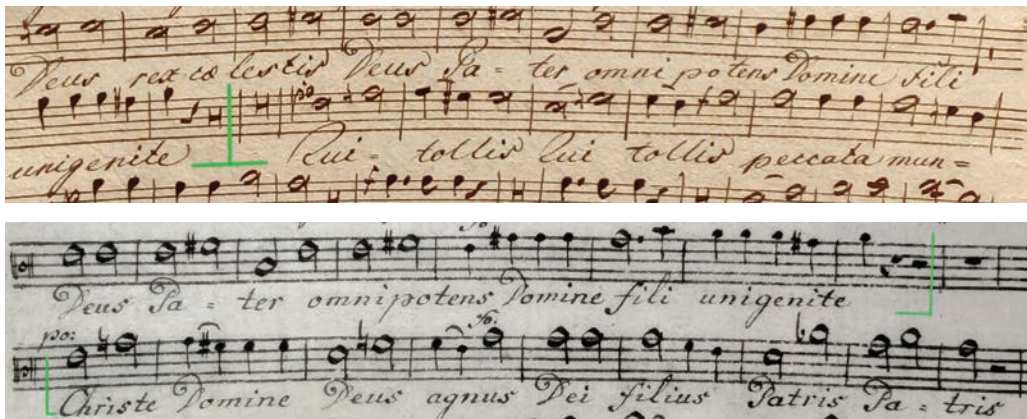 Deus rex cœlestis Deus Pa- ter omnipotens Domine fili
po
unigenite Qui- tollis Qui tollis peccata mun=
fo
Deus Pa- ter omnipotens Domine fili unigenite
po: fo:
Christe Domine Deus agnus Dei filius Patris Pa- tris